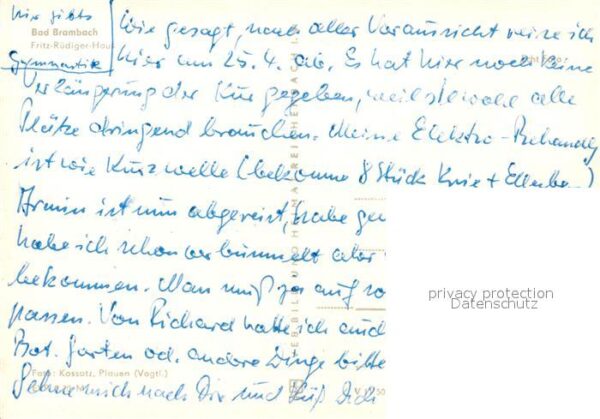 hier gibts
Bad Brambach
Fritz-Rüdiger-Haus
Gymnastik
Wie gesagt, nach aller Voraussicht reise ich
hier am 25.4. ab. Es hat hier noch keine
Verlängerung der Kur gegeben, weil sie wohl alle
Plätze dringend brauchen. Meine Elektro-Behandlg
ist wie Kurzwelle (bekomme 8 Stück Knie + Ellenbo
Armin ist nun abgereist, habe
habe ich schon verbummelt aber
bekommen. Man muß ja auf
passen. Von Richard hatte ich auch
Bot. Garten od. andere Dinge bitte
Foto: Kossatz, Plauen (Vogtl.)
Sehne mich nach Dir und Küß Dich
privacy protection
Datenschutz